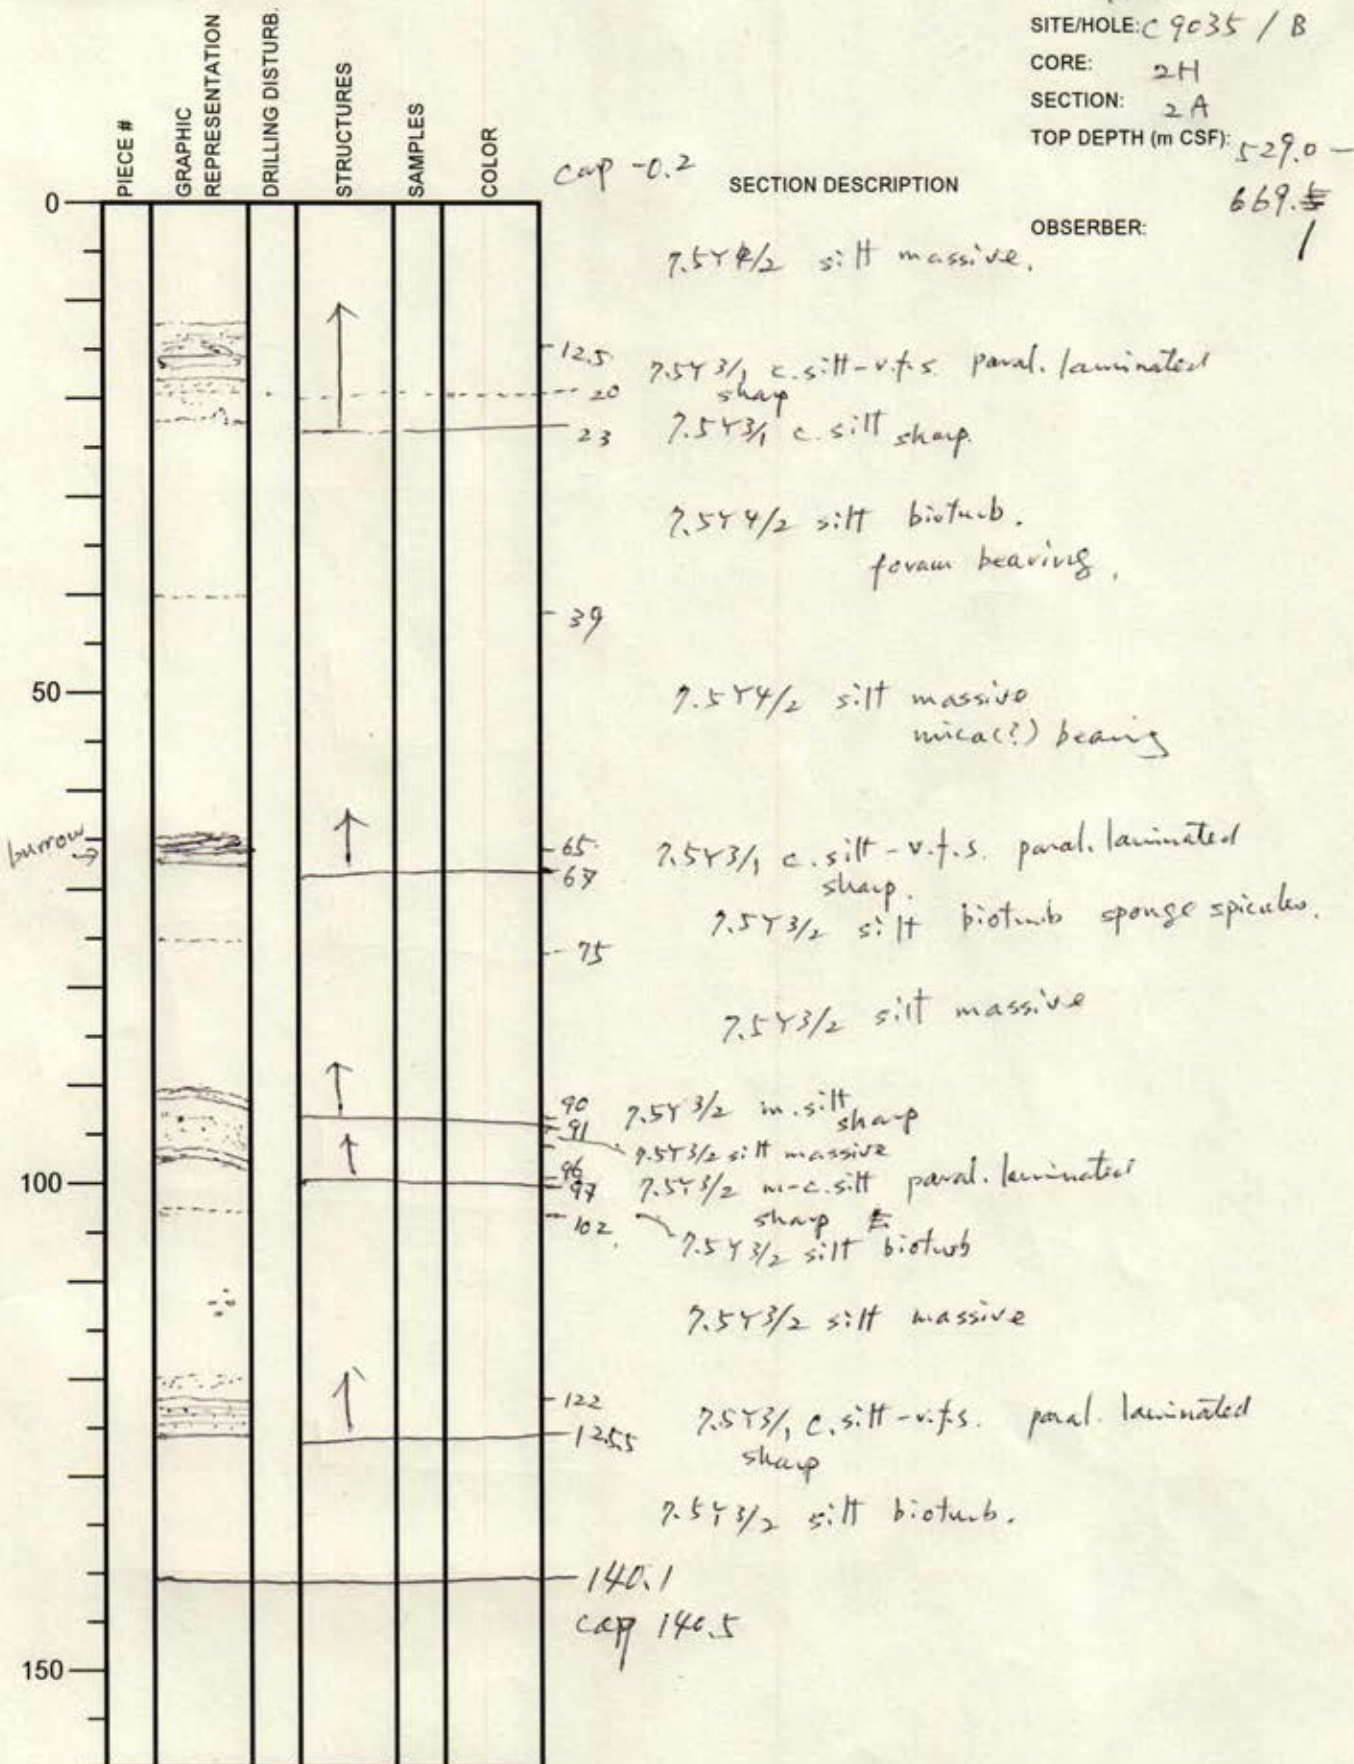 SITE/HOLE: C9035 / B
CORE: 2H
SECTION: 2A
TOP DEPTH (m CSF): 529.0 -
669.
OBSERBER:
PIECE #
GRAPHIC REPRESENTATION
DRILLING DISTURB.
STRUCTURES
SAMPLES
COLOR
cap -0.2
SECTION DESCRIPTION
0
7.5Y 4/2 silt massive.
12.5 7.5Y 3/1 c.silt-v.f.s. paral. laminated
20 sharp
23 7.5Y 3/1 c.silt sharp.
7.5Y 4/2 silt bioturb.
foram bearing.
39
50
7.5Y 4/2 silt massive
mica(?) bearing
burrow
65 7.5Y 3/1 c.silt-v.f.s. paral. laminated
67 sharp.
7.5Y 3/2 silt bioturb sponge spicules.
75
7.5Y 3/2 silt massive
90 7.5Y 3/2 m.silt
91 sharp
7.5Y 3/2 silt massive
96
100
97 7.5Y 3/2 m-c.silt paral. laminated
sharp
102 7.5Y 3/2 silt bioturb
7.5Y 3/2 silt massive
122 7.5Y 3/1 c.silt-v.f.s. paral. laminated
125.5 sharp
7.5Y 3/2 silt bioturb.
140.1
cap 140.5
150